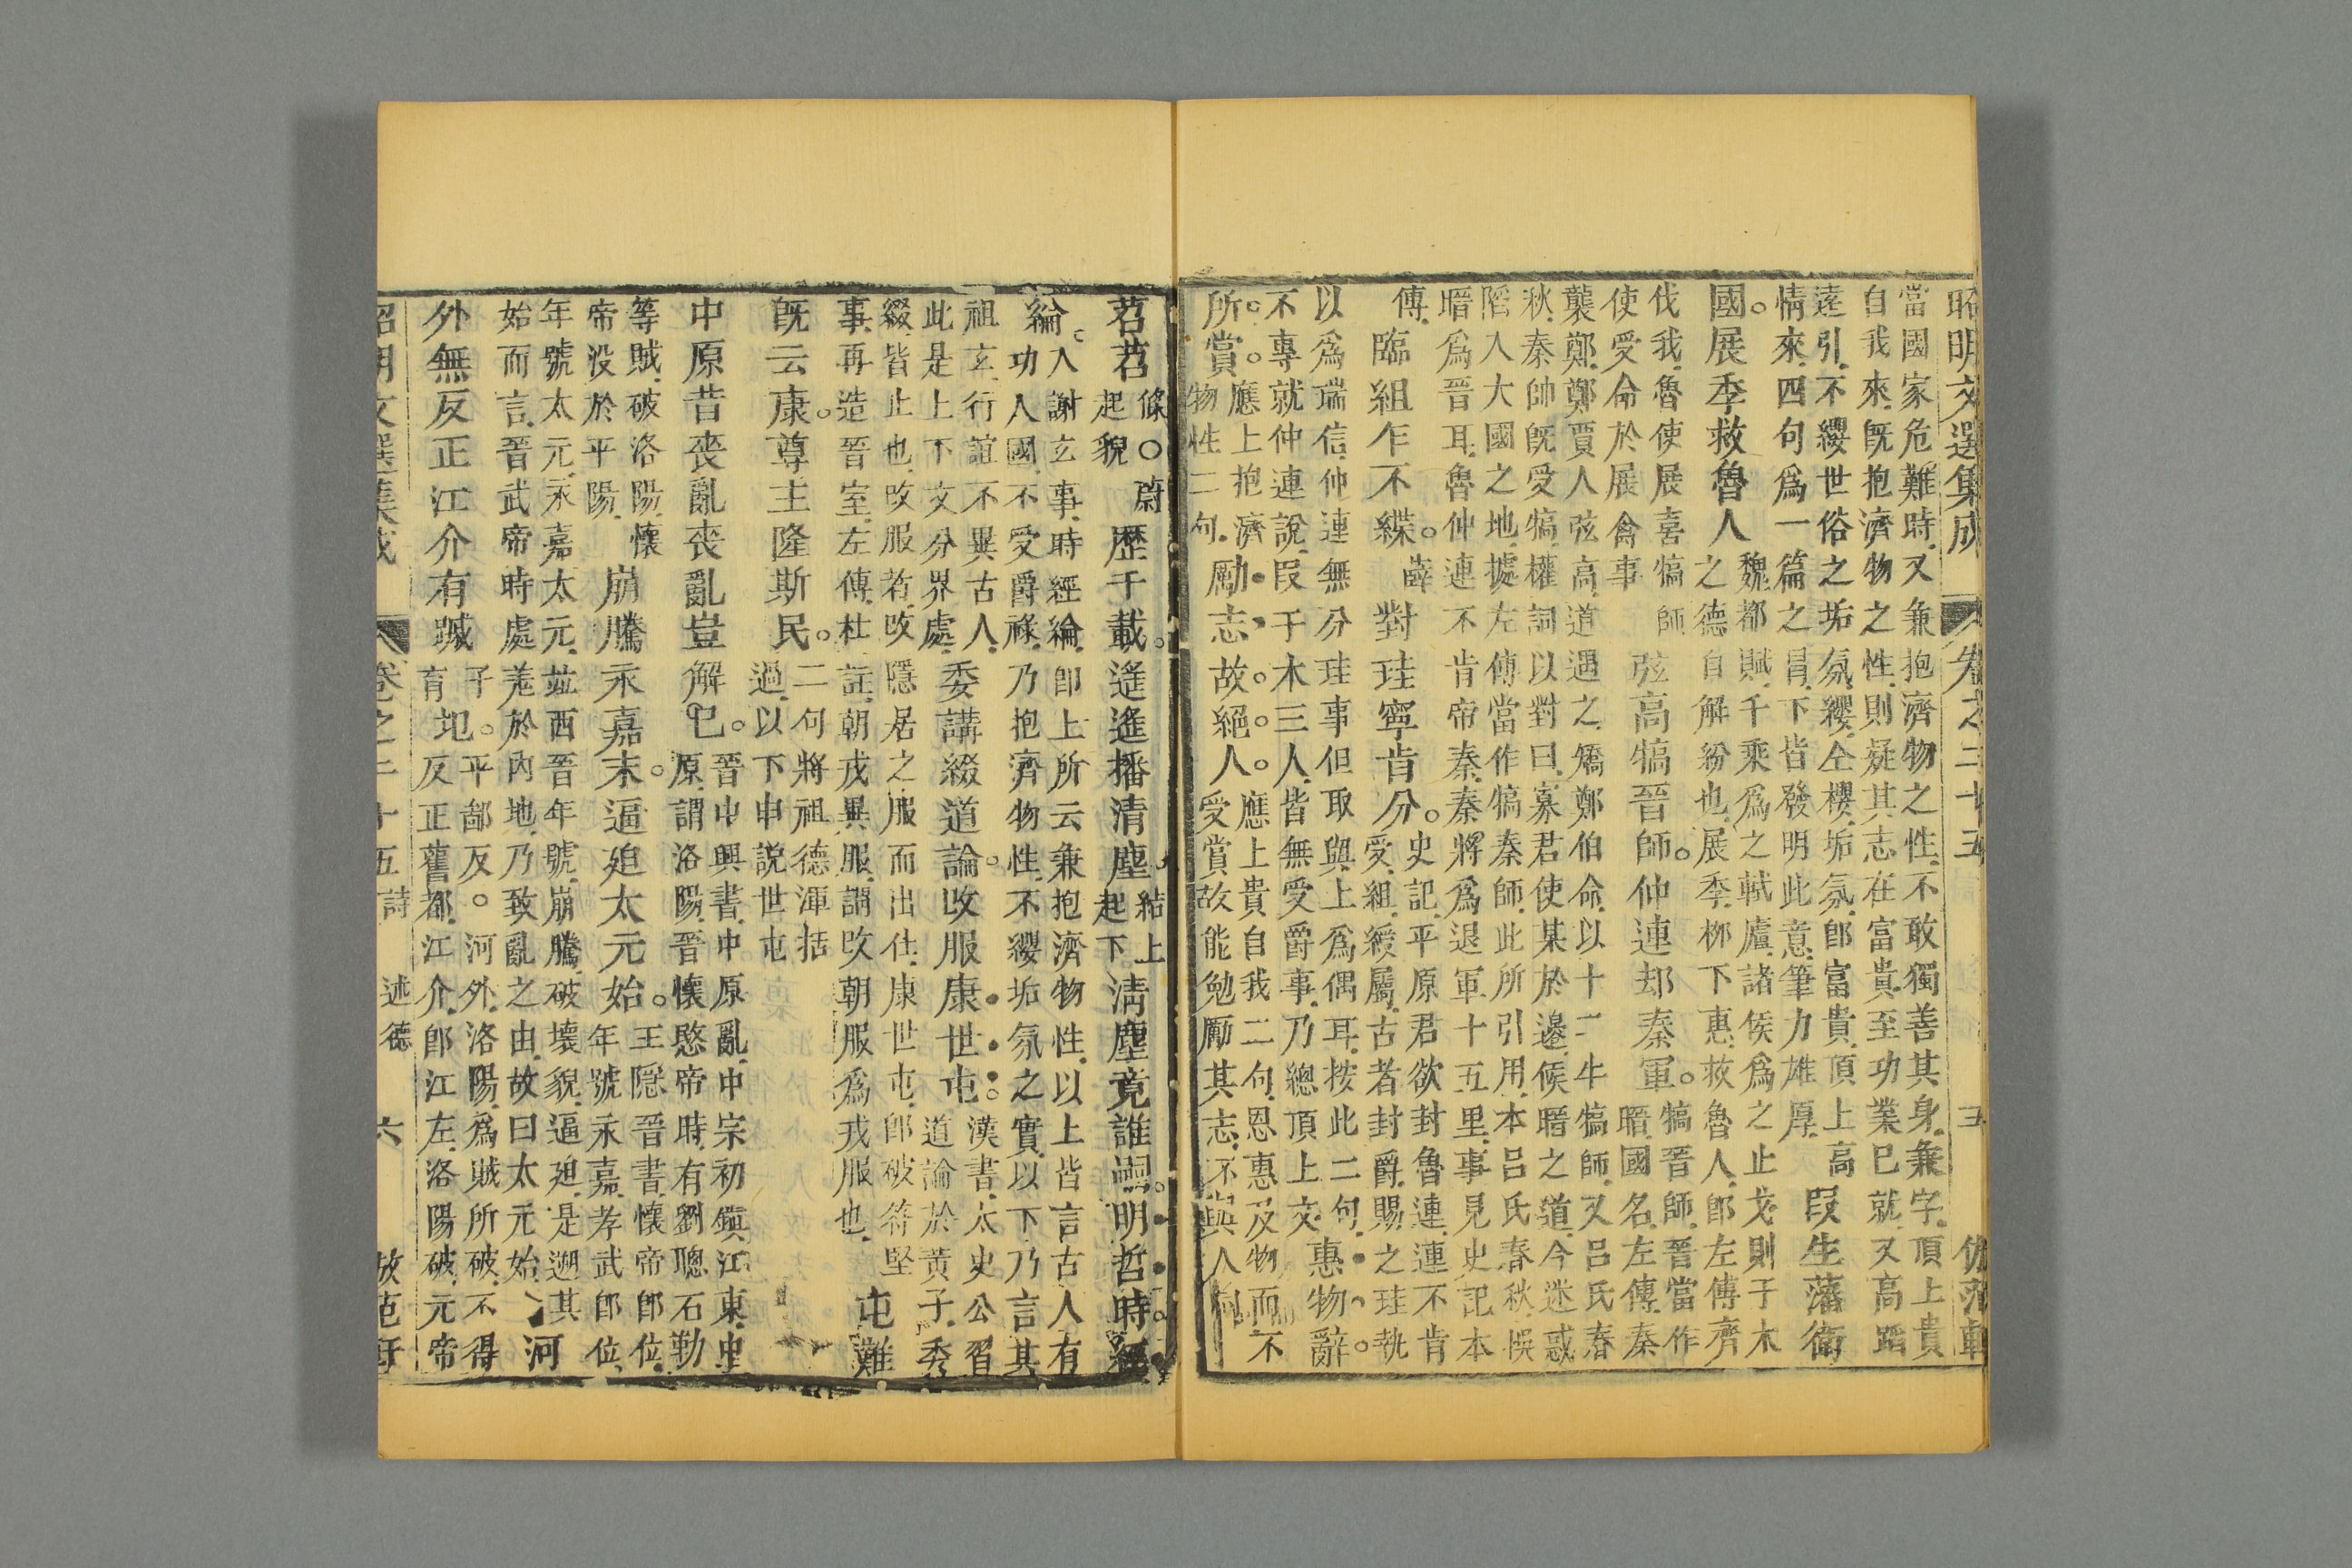 昭明文選集成 卷之二十五 五
當國家危難時又兼抱濟物之性不敢獨善其身兼字頂上貴
自我來既抱濟物之性則疑其志在富貴至功業已就又高蹈
遠引不纓世俗之垢氛纓仝櫻垢氛卽富貴頂上高
情來四句爲一篇之冒下皆發明此意筆力雄厚
段生藩衛
國展季救魯人
魏都賦千乘爲之軾廬諸侯爲之止戈則干木
之德自解紛也展季柳下惠救魯人卽左傳齊
伐我魯使展喜犒師
使受命於展禽事
弦高犒晉師仲連却秦軍
犒晉師晉當作
㬆國名左傳秦
襲鄭鄭賈人弦高道遇之矯鄭伯命以十二牛犒師又呂氏春
秋秦帥既受犒權詞以對曰寡君使某於邊候㬆之道今迷惑
陷入大國之地據左傳當作犒秦師此所引用本呂氏春秋悞
㬆爲晉耳魯仲連不肯帝秦秦將爲退軍十五里事見史記本
傳
臨組乍不緤
薛
對珪寧肯分
史記平原君欲封魯連連不肯
受組綬屬古者封爵賜之珪執
以爲瑞信仲連無分珪事但取與上爲偶耳按此二句
不專就仲連說段干木三人皆無受爵事乃總頂上文
惠物辭
所賞
應上抱濟
物性二句
勵志故絕人
應上貴自我二句恩惠及物而不
受賞故能勉勵其志不與人
苕苕
條○蔚
起貌
歷千載遙遙播清塵
結上
起下
清塵竟誰嗣明哲時經
綸
入謝玄事時經綸卽上所云兼抱濟物性以上皆言古人有
功人國不受爵祿乃抱濟物性不纓垢氛之實以下乃言其
祖玄行誼不異古人
此是上下文分界處
委講綴道論改服康世屯
漢書太史公習
道論於黃子秀
綴皆止也改服若改隱居之服而出仕康世屯卽破苻堅
事再造晉室左傳杜註朝戎異服謂改朝服爲戎服也
屯難
既云康尊主隆斯民
二句將祖德渾括
過以下申說世屯
中原昔喪亂喪亂豈解已
晉中興書中原亂中宗初鎭江東中
原謂洛陽晉懷愍帝時有劉聰石勒
等賊破洛陽懷
帝没於平陽
崩騰永嘉末逼迫太元始
王隱晉書懷帝卽位
年號永嘉孝武卽位
年號太元永嘉太元竝西晉年號崩騰破壞貌逼迫是遡其
始而言晉武帝時處羗於內地乃致亂之由故曰太元始
河
外無反正江介有蹙
子
育
圮
平鄙反。河外洛陽爲賊所破不得
反正舊都江介卽江左洛陽破元帝
昭明文選集成 卷之二十五 詩 述德 六